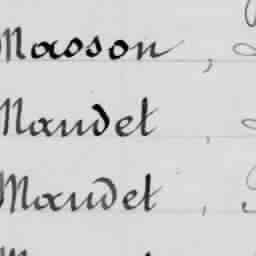 Masson,
Maudet,
Maudet,